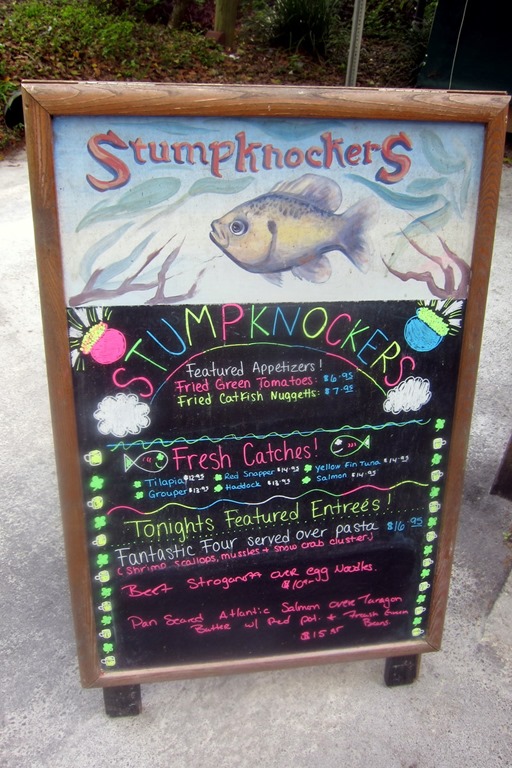 Stumpknockers
STUMPKNOCKERS
Featured Appetizers!
Fried Green Tomatoes: $6.95
Fried Catfish Nuggetts: $7.95
Fresh Catches!
Tilapia $12.95 Red Snapper $14.95 Yellow Fin Tuna $14.95
Grouper $13.95 Haddock $13.95 Salmon $14.95
Tonights Featured Entreés!
Fantastic Four served over pasta $16.95
(Shrimp, scallops, mussles + snow crab cluster)
Beef Stroganoff over egg Noodles.
Pan Seared Atlantic Salmon over Taragon
Butter w/ Red pot. + Fresh Green
Beans
$15.95